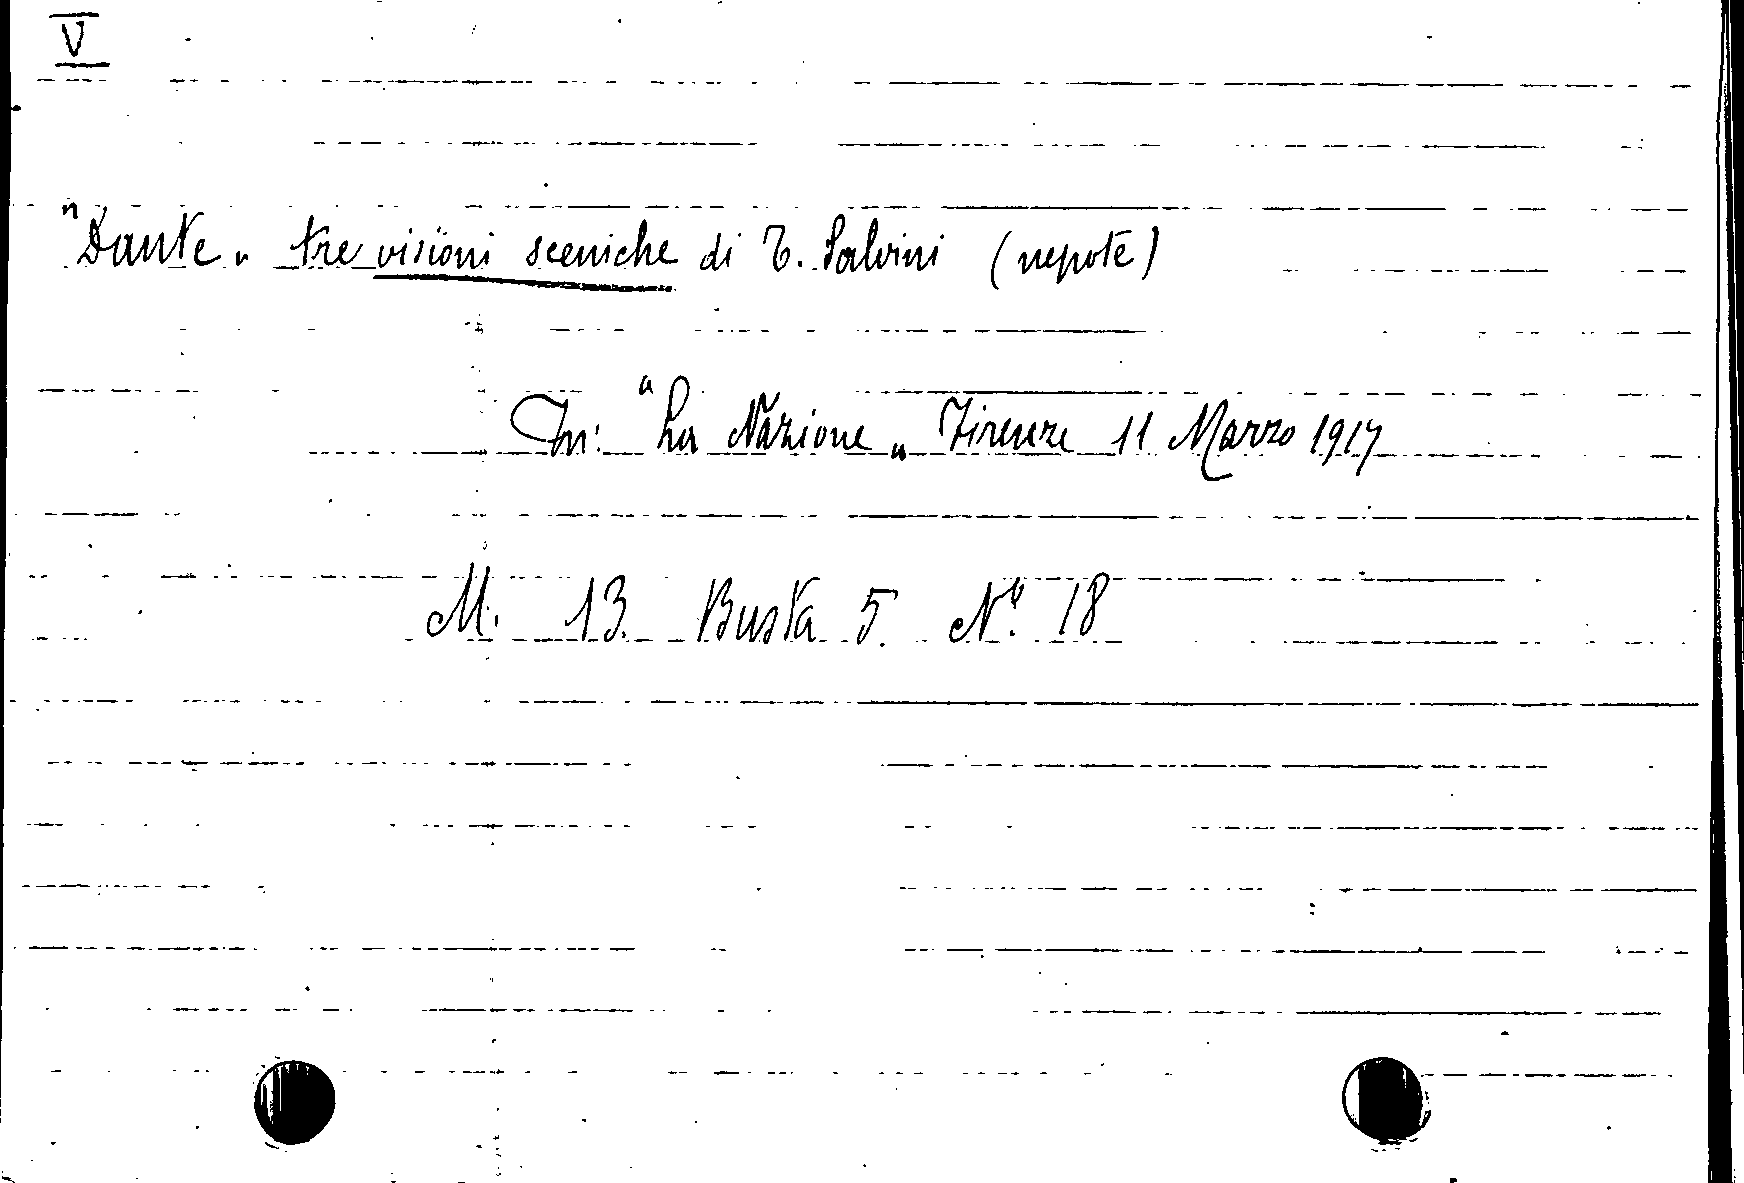 V
"Dante" tre visioni sceniche di T. Salvini (nepote)
In: "La Nazione" Firenze 11 Marzo 1917
M. 13. Busta 5. Nº 18